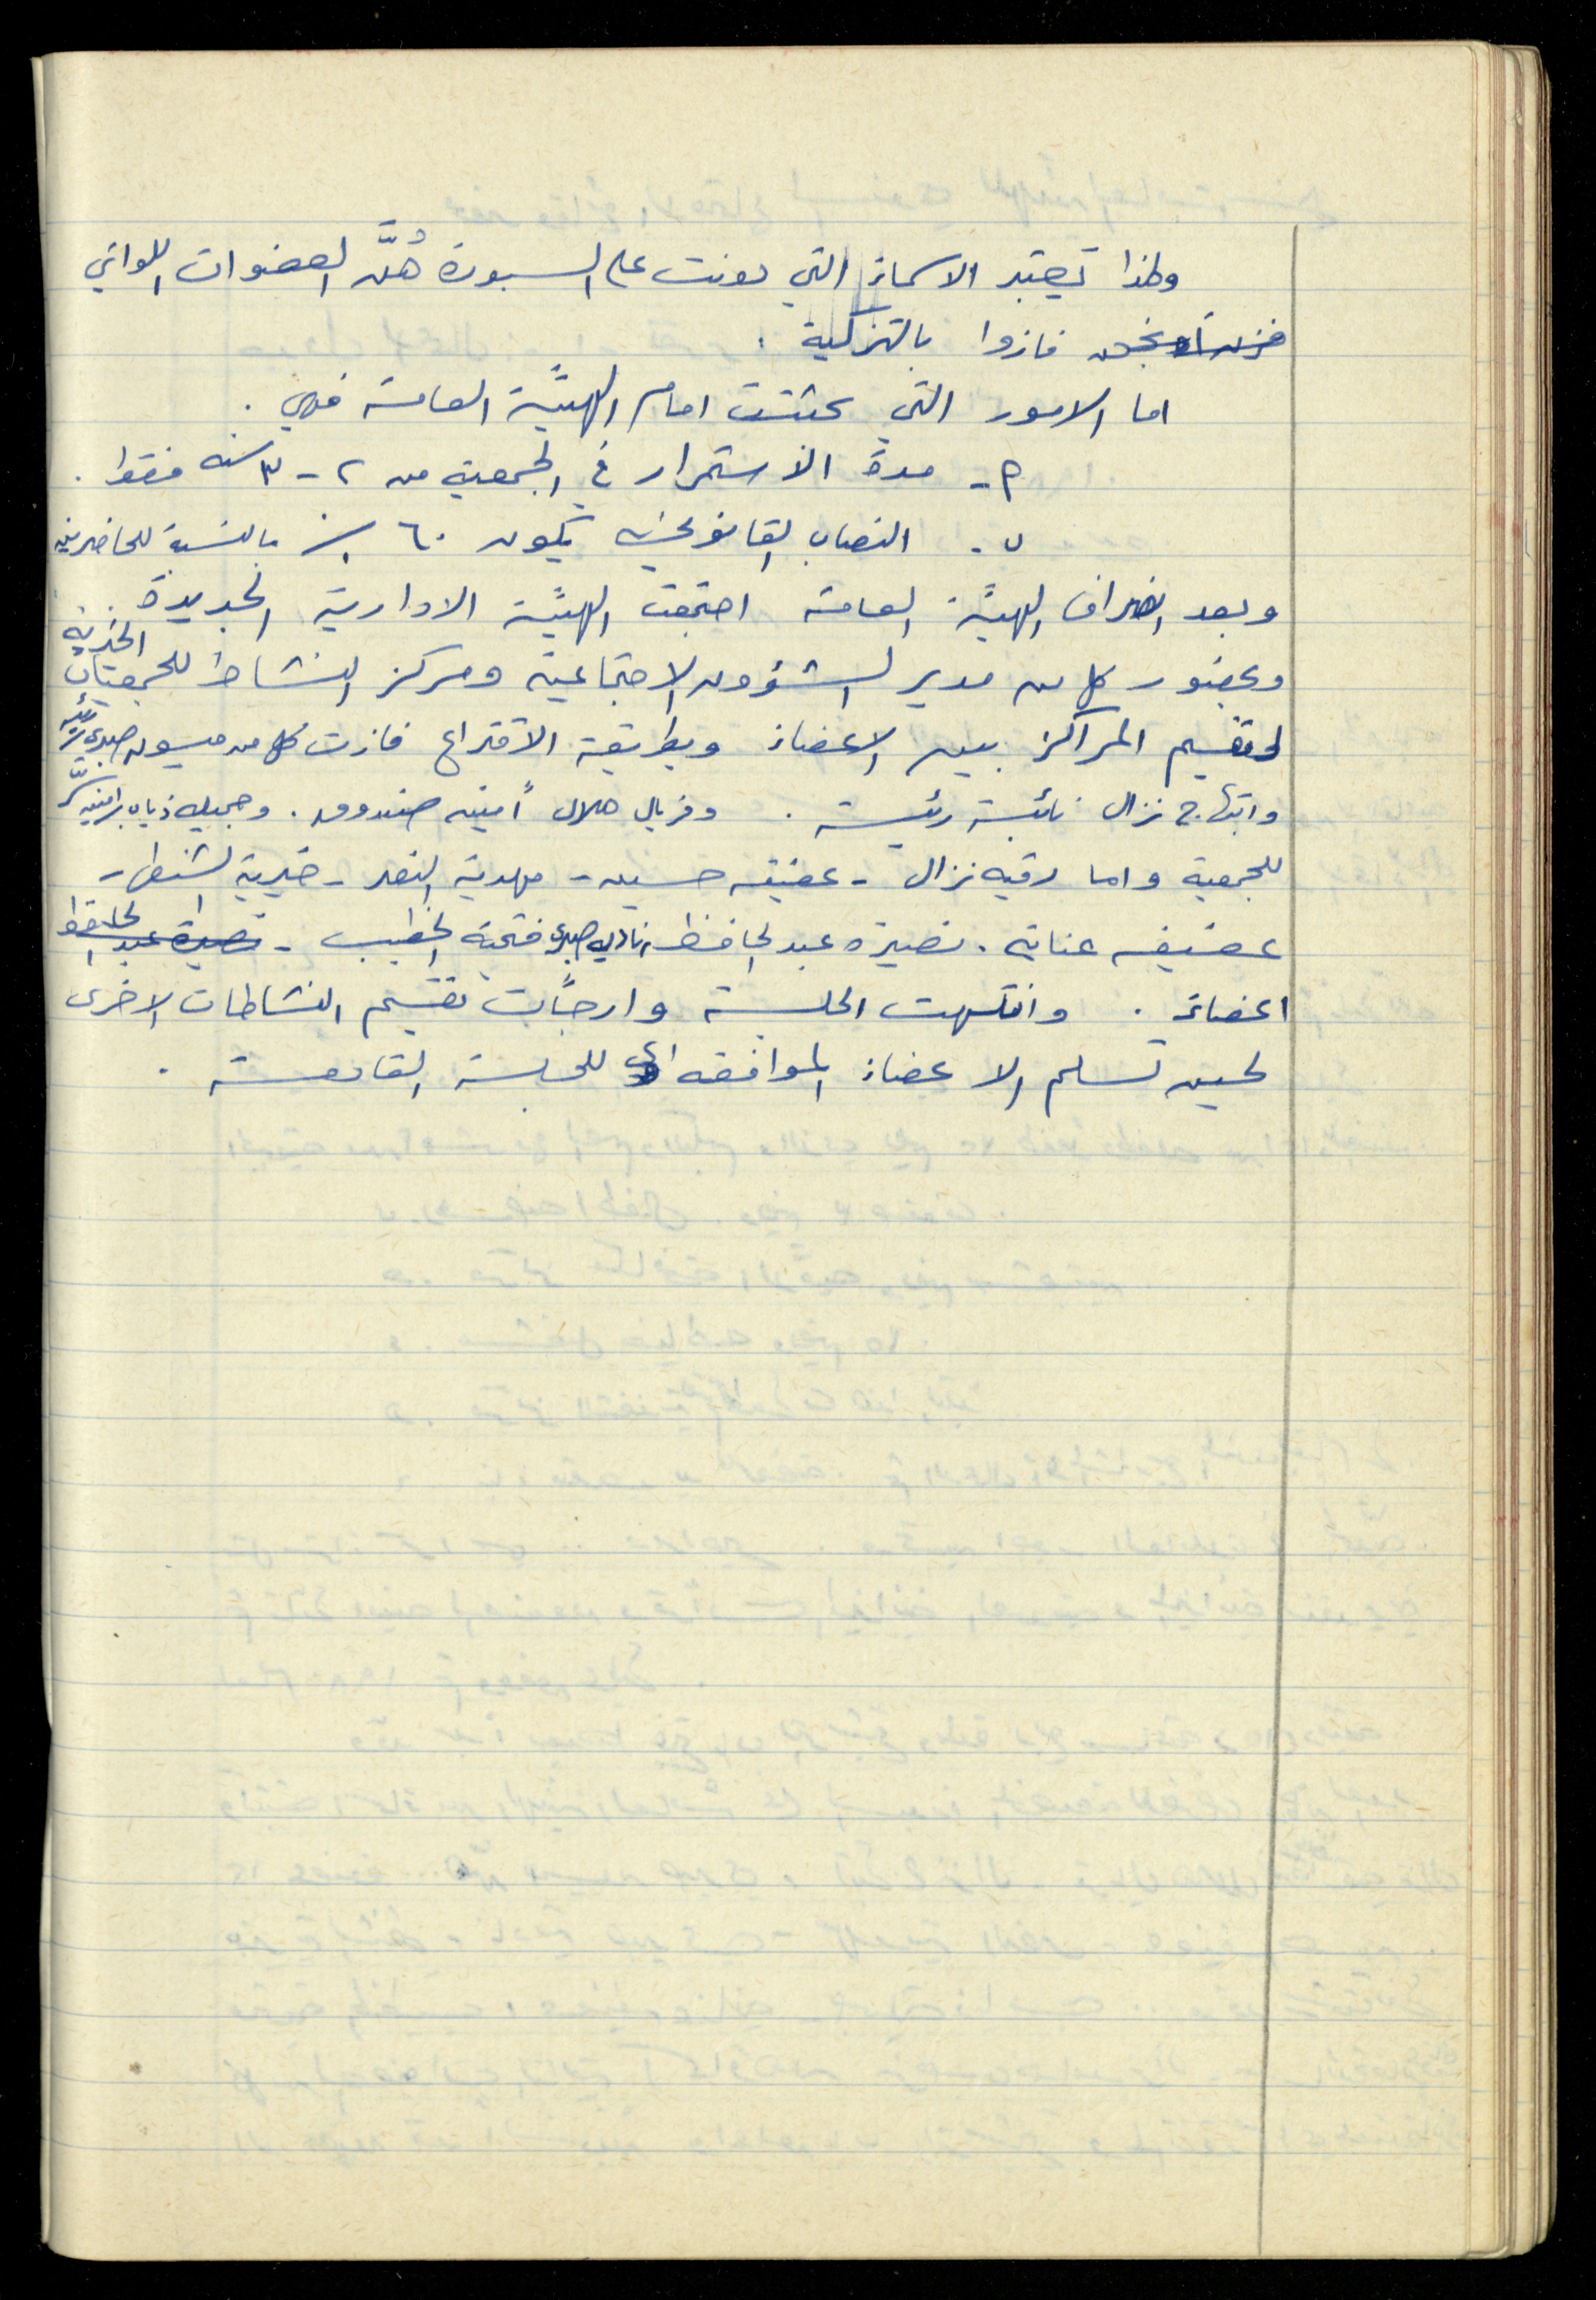 ولهذا تعتبر الاسماء التي دونت على السبورة هُنَّ العضوات اللواتي
فازوا بالتزكية .
اما الامور التي بحثت امام الهيئة العامة فهي .
م - مدة الاستمرار في الجمعية من ٢ - ٣ سنه فقط .
ب . النصاب القانوني يكون ٦٠ ٪ بالنسبة للحاضرين
وبعد انصراف الهيئة العامة اجتمعت الهيئة الادارية الجديدة
وبحضور كل من مدير الشؤون الاجتماعية ومركز النشاط للجمعيات الخيرية
لتقسيم المراكز بين الاعضاء وبطريقة الاقتراع فازت كل من ميسون صبري رئيسه
وابتهاج نزال نائبة رئيسة . وفريال هلال أمينه صندوق . وجميله ذياب امينه سرّ
للجمعية واما رقيه نزال - عفيفه حسين - مهدية النصر - خيرية الشنطي -
عفيفه عنايه . نصيره عبد الحافظ ، ناديه صبري فتحية الخطيب - نصيرة عبد الحافظ
اعضاء . وانتهت الجلسة وارجأت تقسيم النشاطات الاخرى
لحين تسلم الاعضاء الموافقه الى للجلسة القادمة .